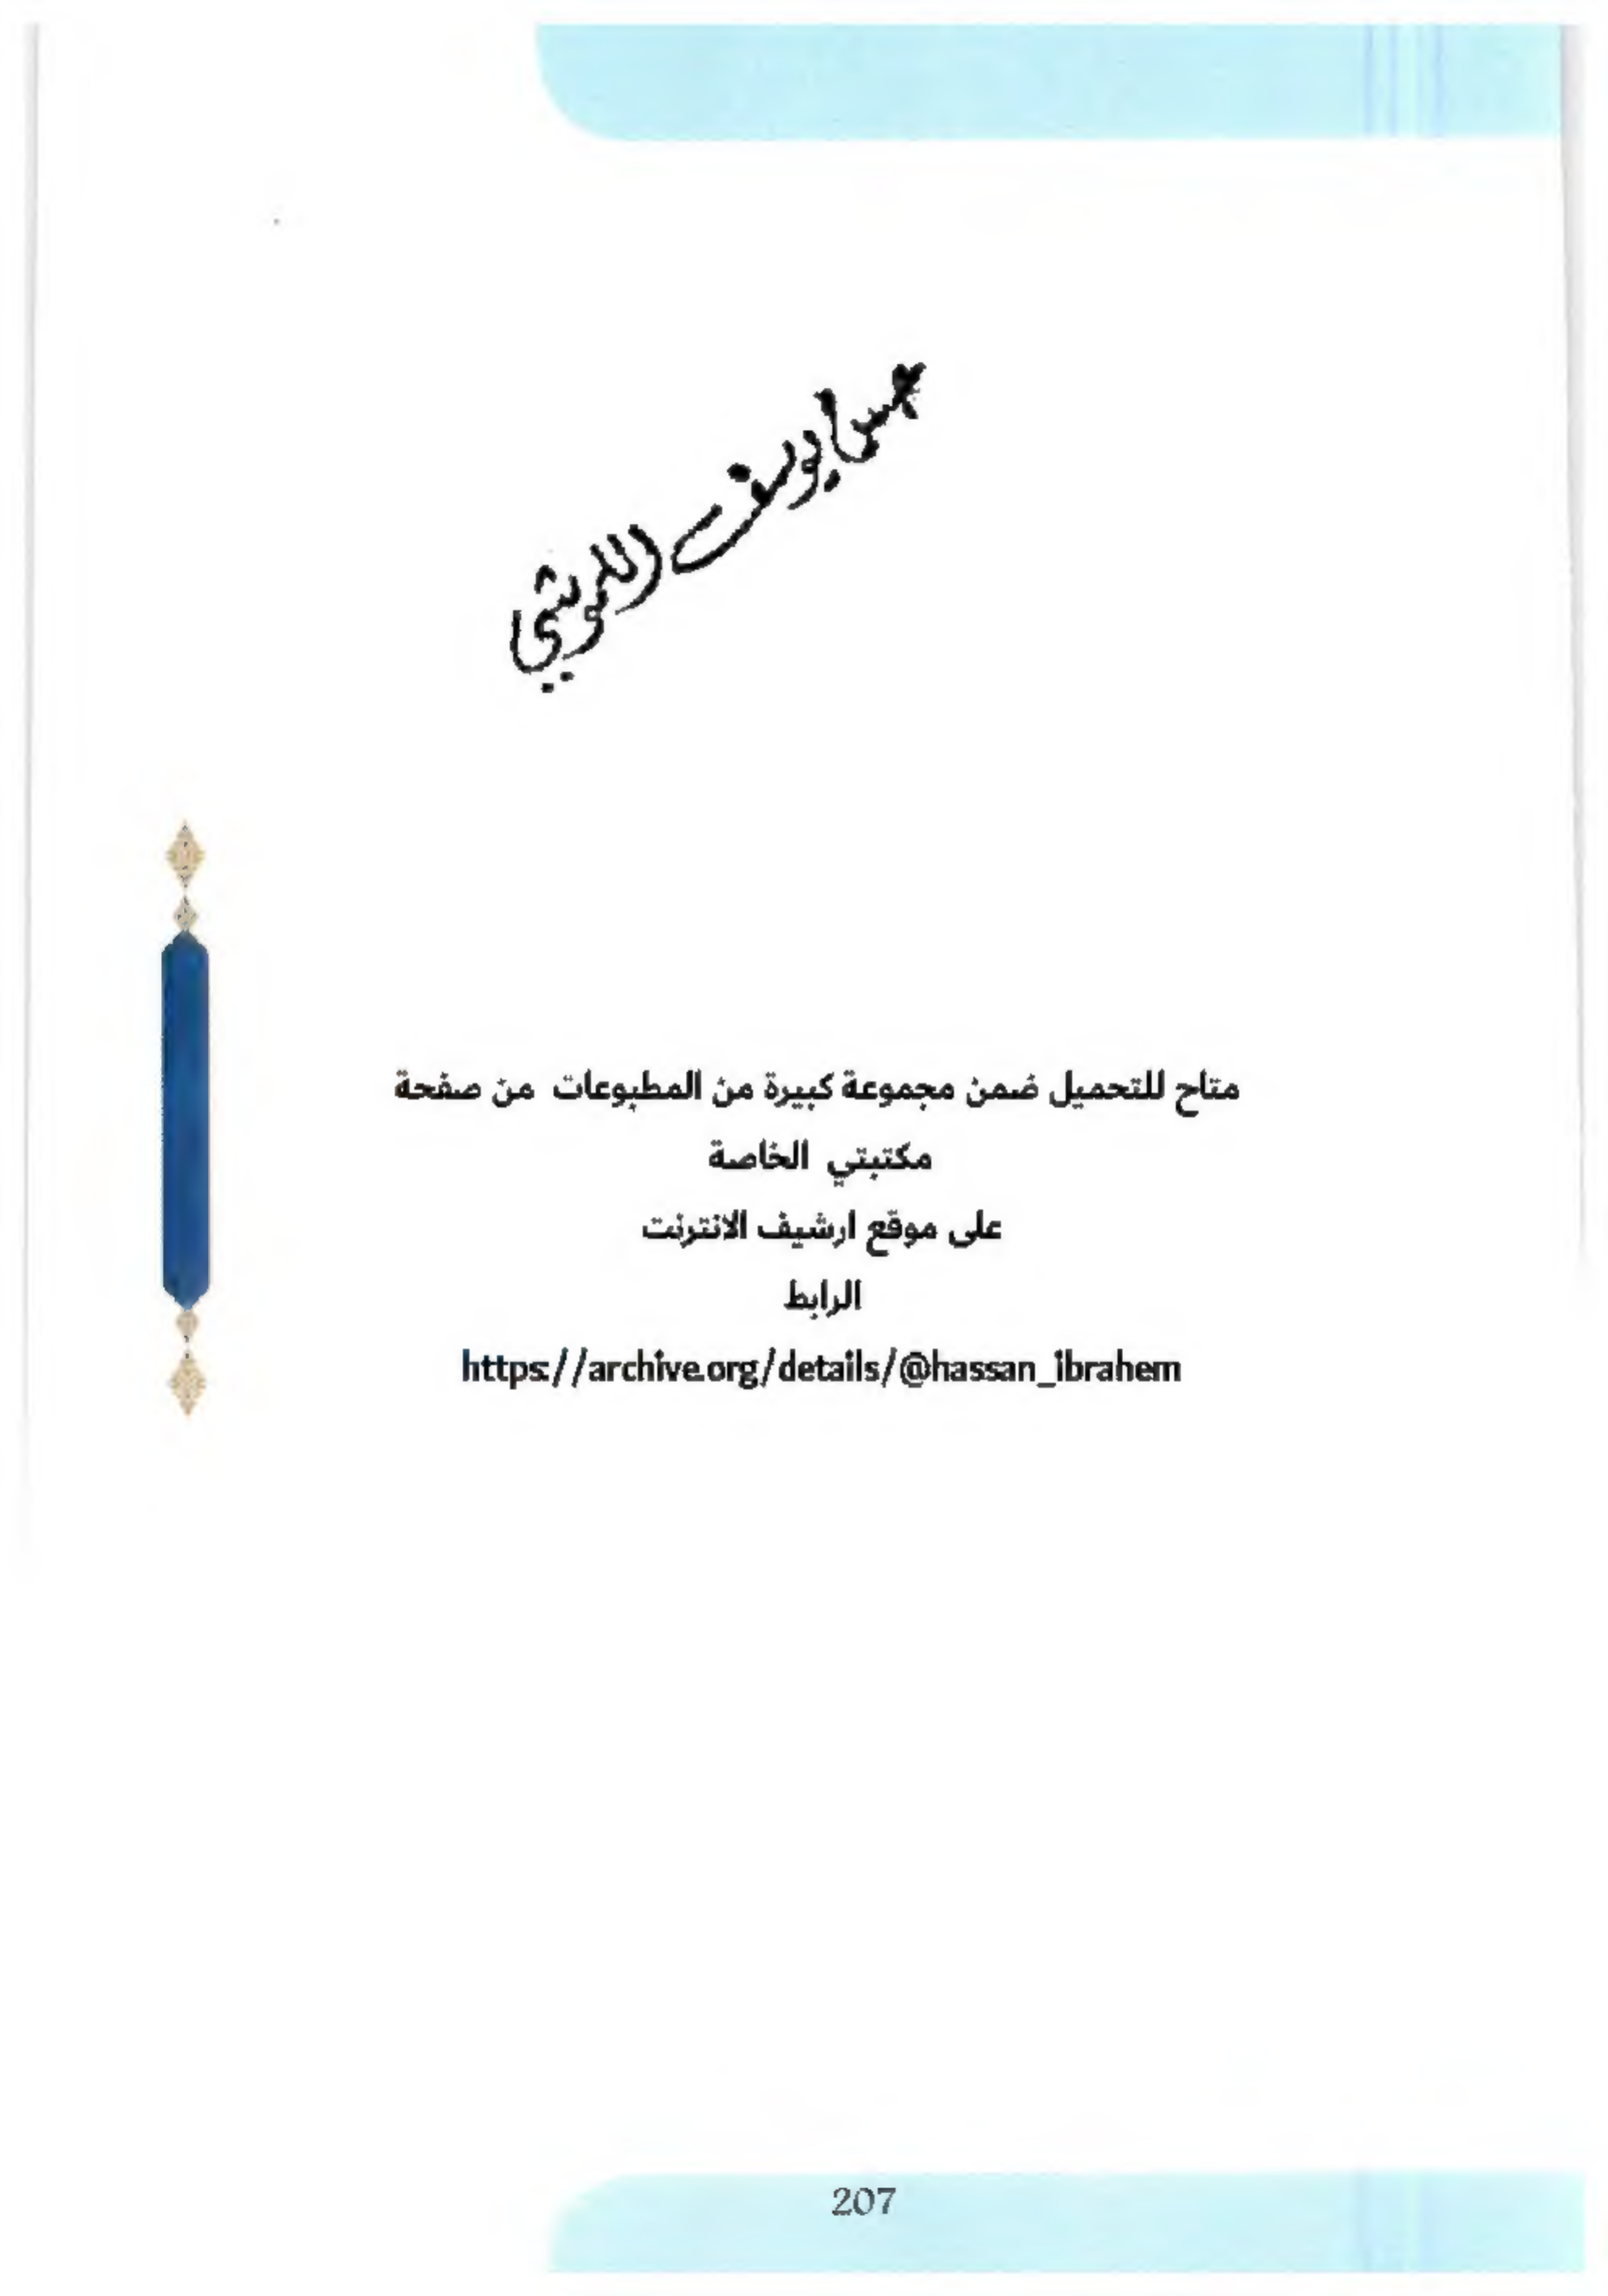 يوسف
متاح للتحميل ضمن مجموعة كبيرة من المطبوعات من صفحة
مكتبتي الخاصة
على موقع ارشيف الانترنت
الرابط
https://archive.org/details/@hassan_ibrahem
207